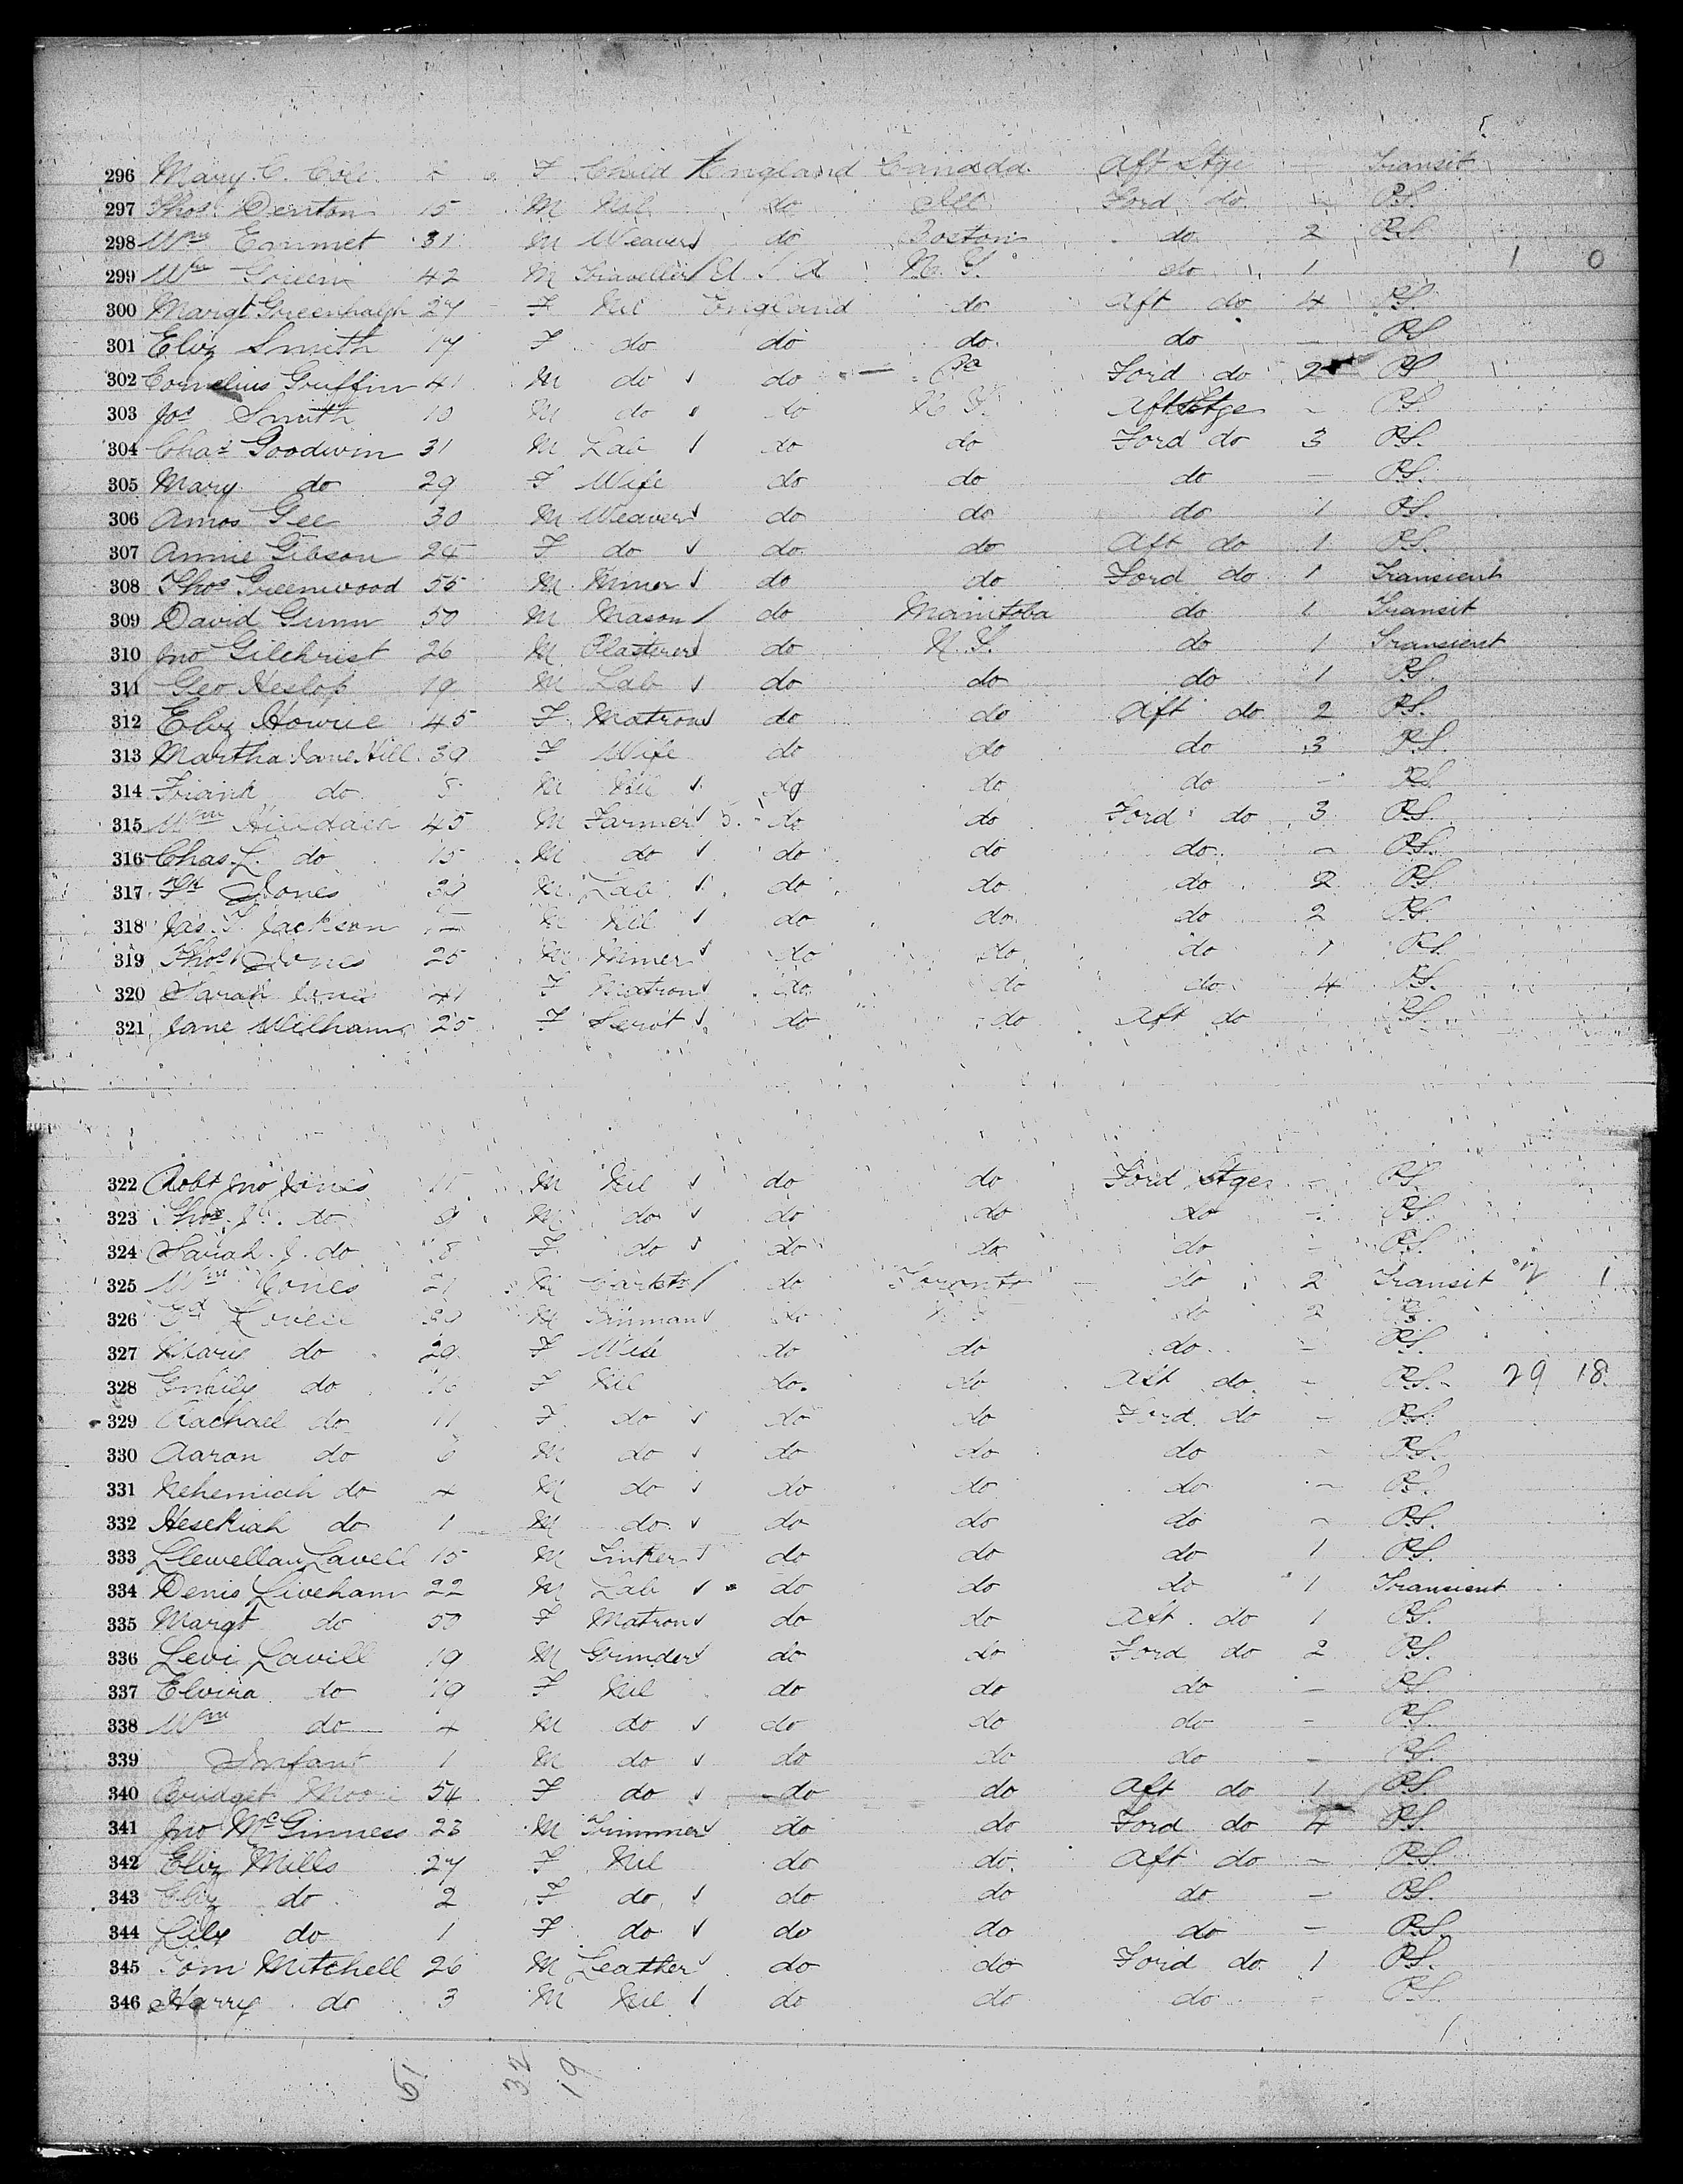 296 Mary C. Cole F Child England Canada Aft Stge - Transit
297 Thos Denton 15 M Nil do Ford do - P.S.
298 Wm 31 M Weaver do Boston do 2 P.S.
299 Wm Green 42 M Traveller U S A N. Y. do 1 1 0
300 Margt Greenhalgh 27 F Nil England do Aft do 4 P.S.
301 Eliz Smith 17 F do do do do - P.S
302 Cornelius Griffin 41 M do do Pa Ford do 2 P.S
303 Jos Smith 10 M do do N. Y. Aft Stge - P.S.
304 Chas Goodwin 31 M Lab do do Ford do 3 P.S.
305 Mary do 29 F Wife do do do - P.S.
306 Amos Gee 30 M Weaver do do do 1 P.S.
307 Annie Gibson 24 F do do do Aft do 1 P.S.
308 Thos Greenwood 55 M Miner do do Ford do 1 Transient
309 David Gunn 50 M Mason do Manitoba do 1 Transit
310 Jno Gilchrist 26 M Plasterer do N. Y. do 1 Transient
311 Geo Heslop 19 M Lab do do do 1 P.S.
312 Eliz Howrie 45 F Matron do do Aft do 2 P.S.
313 Martha Jane Hill 39 F Wife do do do 3 P.S.
314 Frank do 8 M Nil do do do - P.S.
315 Wm 45 M Farmer do do Ford do 3 P.S.
316 Chas. L. do 15 M do do do do - P.S.
317 Jones M Lab do do do 2 P.S
318 Jas. T. Jackson M Nil do do do 2 P.S.
319 Thos Jones 25 M Miner do do do 1 P.S.
320 Sarah Jones 41 F Matron do do do 4 P.S.
321 Jane Williams 25 F Servt do do Aft do P.S.
322 Robt Jno Jones 11 M Nil do do Ford Stge - P.S.
323 Thos. do 9 M do do do do - P.S.
324 Sarah. J. do 8 F do do do do - P.S.
325 Wm Jones 21 M do Toronto do 2 Transit 1
326 Lovell M do N Y do 2
327 Mary do 29 F Wife do do do - P.S.
328 Emily do 16 F Nil do do Aft do - P.S. 29 18
329 Rachael do 11 F do do do Ford do - P.S.
330 Aaron do 6 M do do do do - P.S.
331 Nehemiah do 4 M do do do do - P.S.
332 Hesekiah do 1 M do do do do - P.S.
333 Llewellan Lavell 15 M Tinker do do do 1 P.S.
334 Denis Liveham 22 M Lab do do do 1 Transient
335 Margt do 50 F Matron do do Aft do 1 P.S.
336 Levi Lavell 19 M Grinder do do Ford do 2 P.S.
337 Elvira do 19 F Nil do do do - P.S.
338 Wm do 4 M do do do do - P.S.
339 Infant 1 M do do do do - P.S.
340 Bridget Moore 54 F do do do Aft do 1 P.S.
341 Jno McGinness 23 M Trimmer do do Ford do 4 P.S.
342 Eliz Mills 27 F Nil do do Aft do - P.S.
343 Eliz do 2 F do do do do - P.S.
344 Lily do 1 F do do do do - P.S.
345 Tom Mitchell 26 M Leather do do Ford do 1 P.S.
346 Harry do 3 M Nil do do do - P.S.
51 32 19